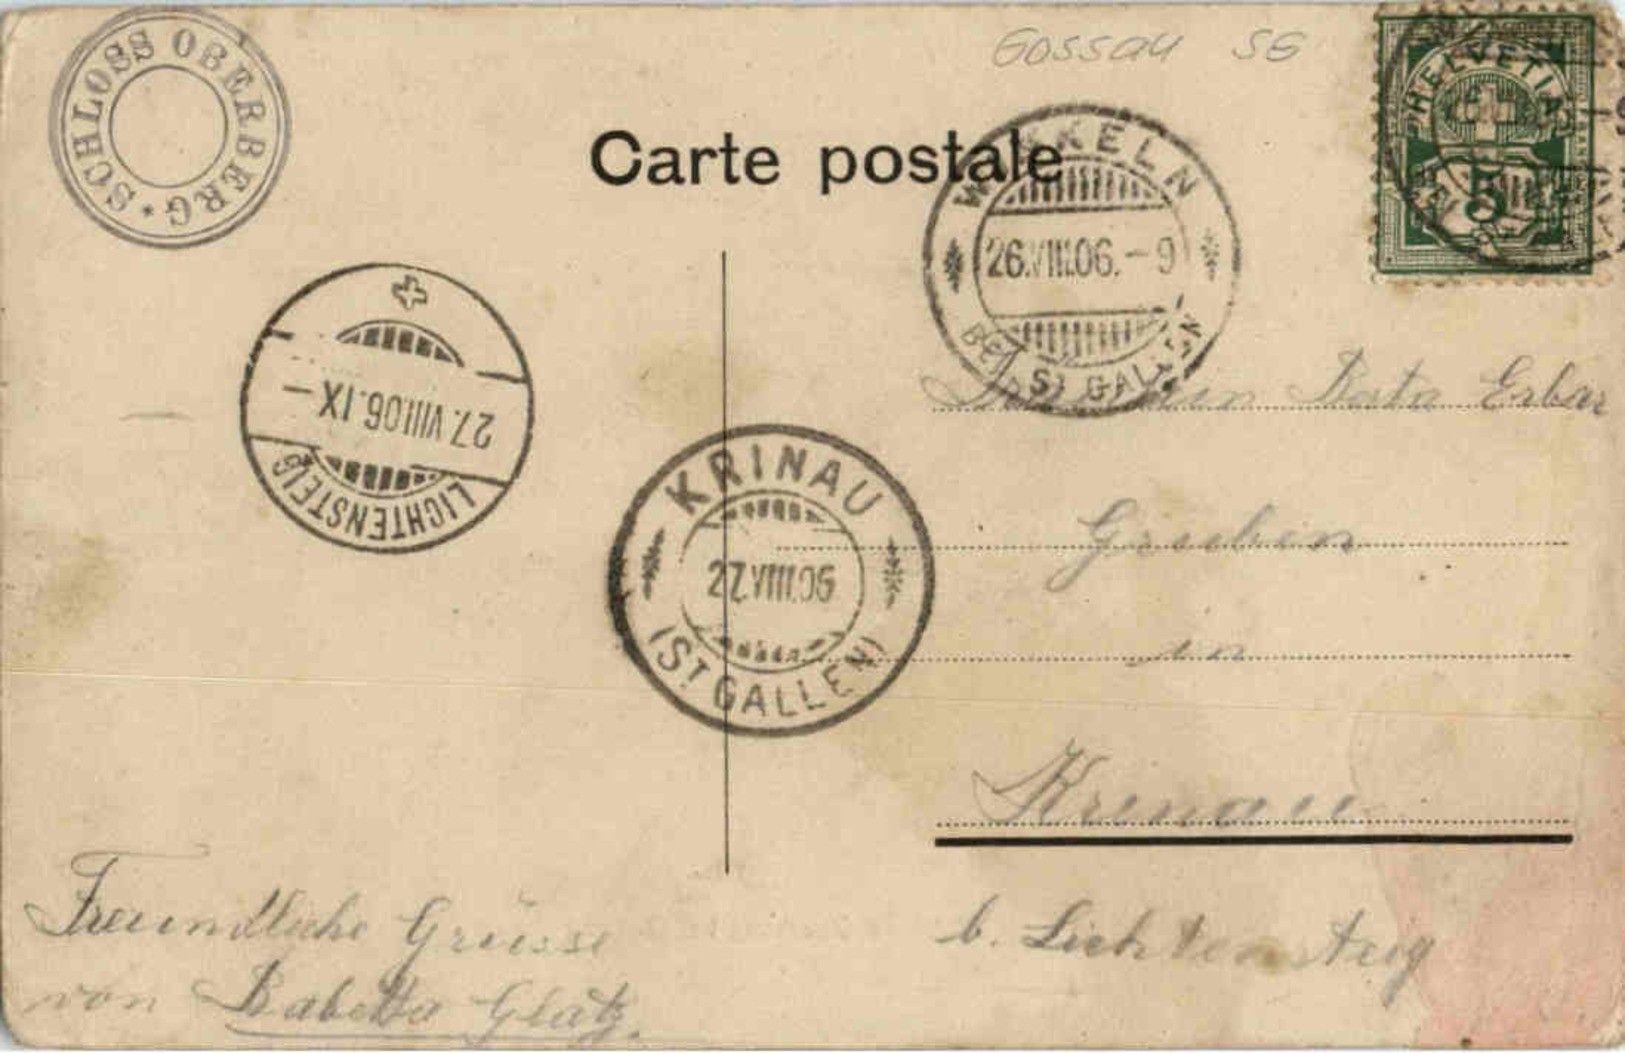 SCHLOSS OBERBERG *
Gossau SG
HELVETIA
5
Carte postale
WINKELN
26.VIII.06.-9
BEI ST GALLEN
27.VIII.06.IX-
LICHTENSTEIG
KRINAU
27.VIII.06
(ST GALLEN)
Erbar
Gruben
in
Krinau
b. Lichtensteig
Freundliche Grüsse
von Babetta Glatz.